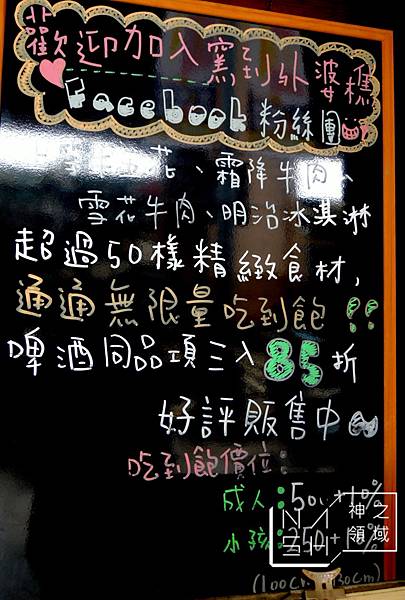 歡迎加入窯到外婆橋
Facebook 粉絲團
花、霜降牛肉、
雪花牛肉、明治冰淇淋
超過50樣精緻食材,
通通無限量吃到飽!!
啤酒同品項三入85折
好評販售中
吃到飽價位:
成人:50 +10%
小孩:250+10%
(100cm 130cm)
神之領域